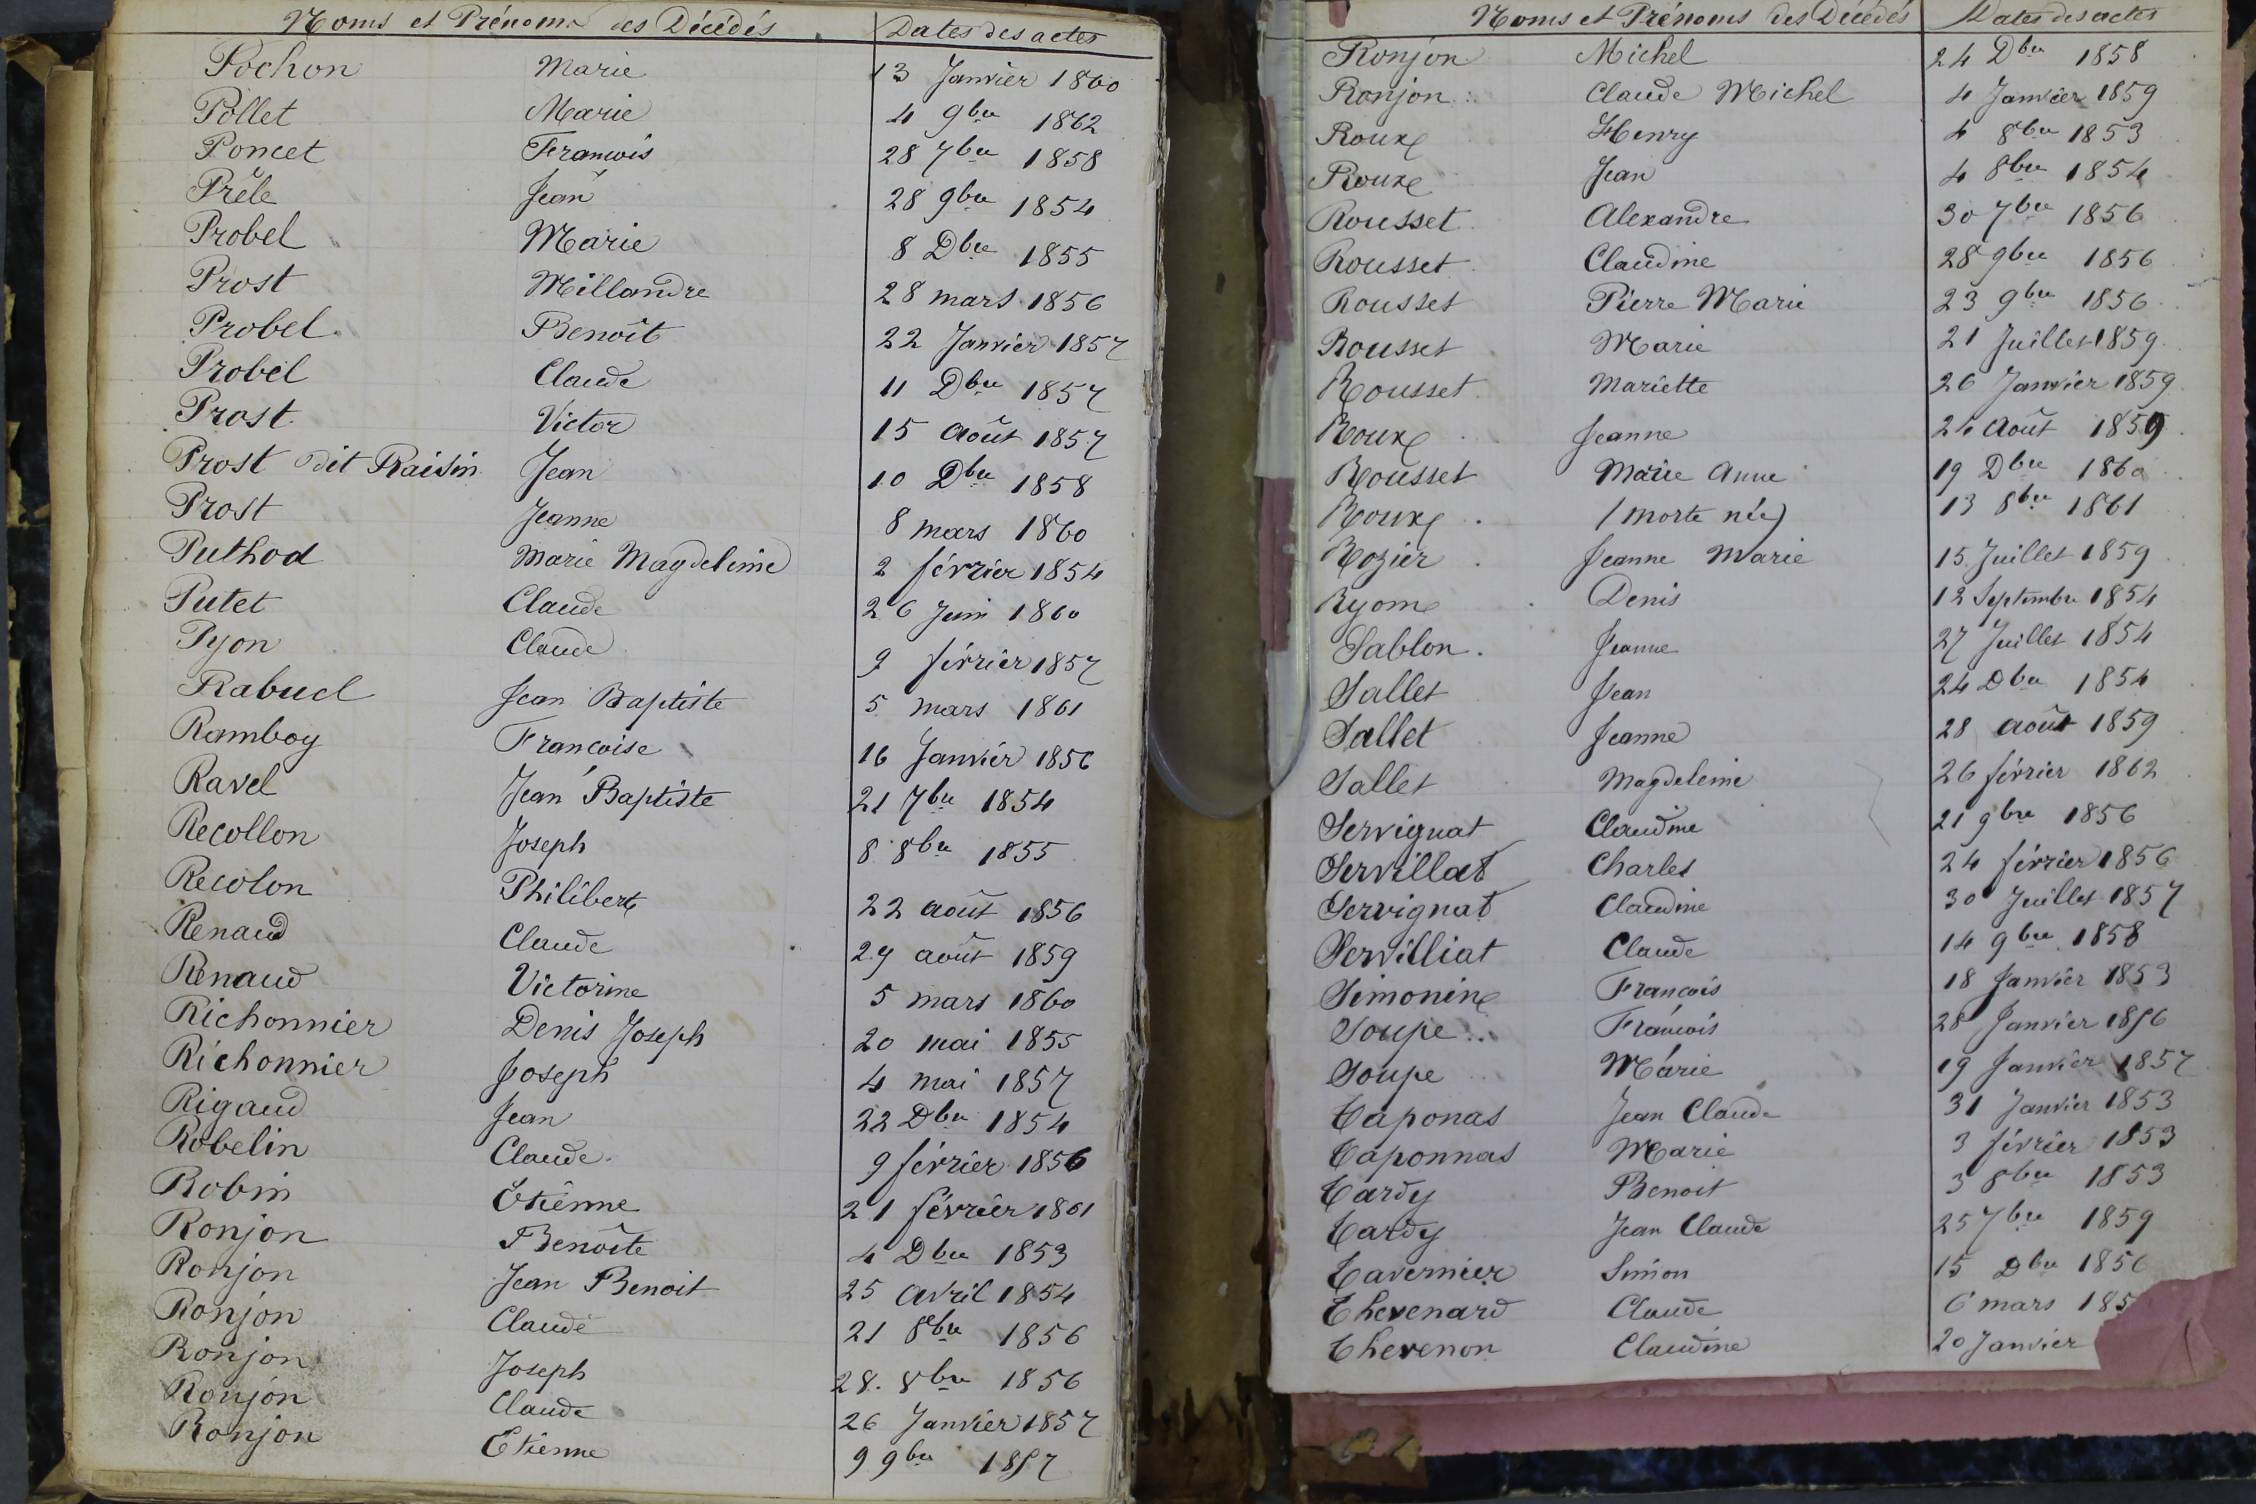 Noms et Prénoms des Décédés Dates des actes
Pochon Marie 13 Janvier 1860
Pollet Marie 4 9bre 1862
Poncet Francois 28 7bre 1858
Prêle Jean 28 9bre 1854
Probel Marie 8 Dbre 1855
Prost Millandre 28 mars 1856
Probel Benoît 22 Janvier 1857
Probel Claude 11 Dbre 1857
Prost Victor 15 Août 1857
Prost dit Raisin Jean 10 Dbre 1858
Prost Jeanne 8 mars 1860
Puthod Marie Magdeleine 2 février 1854
Putet Claude 26 Juin 1860
Pyon Claude 9 février 1857
Rabuel Jean Baptiste 5 mars 1861
Ramboy Francoise 16 Janvier 1856
Ravel Jean Baptiste 21 7bre 1854
Recollon Joseph 8 8bre 1855
Recolon Philibert 22 août 1856
Renaud Claude 29 août 1859
Renaud Victorine 5 mars 1860
Richonnier Denis Joseph 20 mai 1855
Richonnier Joseph 4 mai 1857
Rigaud Jean 22 Dbre 1854
Robelin Claude 9 février 1856
Robin Etienne 21 février 1861
Ronjon Benoîte 4 Dbre 1853
Ronjon Jean Benoit 25 avril 1854
Ronjon Claude 21 8bre 1856
Ronjon Joseph 28. 8bre 1856
Ronjon Claude 26 Janvier 1857
Ronjon Etienne 9 9bre 1857
Noms et Prénoms des Décédés Dates des actes
Ronjon Michel 24 Dbre 1858
Ronjon Claude Michel 4 Janvier 1859
Roux Henry 4 8bre 1853
Roux Jean 4 8bre 1854
Rousset Alexandre 30 7bre 1856
Rousset Claudine 28 9bre 1856
Rousset Pierre Marie 23 9bre 1856
Rousset Marie 21 Juillet 1859
Rousset Mariette 26 Janvier 1859
Roux Jeanne 24 Août 1859
Rousset Marie Anne 19 Dbre 1860
Roux (morte née) 13 8bre 1861
Rozier Jeanne Marie 15 Juillet 1859
Ryom Denis 12 Septembre 1854
Sablon Jeanne 27 Juillet 1854
Sallet Jean 24 Dbre 1854
Sallet Jeanne 28 août 1859
Sallet Magdeleine 26 février 1862
Servignat Claudine 21 9bre 1856
Servillat Charles 24 février 1856
Servignat Claudine 30 Juillet 1857
Servilliat Claude 14 9bre 1858
Simonin Francois 18 Janvier 1853
Soupe Francois 28 Janvier 1856
Soupe Marie 19 Janvier 1857
Taponas Jean Claude 31 Janvier 1853
Taponnas Marie 3 février 1853
Tardy Benoit 3 8bre 1853
Tardy Jean Claude 25 7bre 1859
Tavernier Simon 15 Dbre 1856
Thevenard Claude 6 mars 185
Thevenon Claudine 20 Janvier